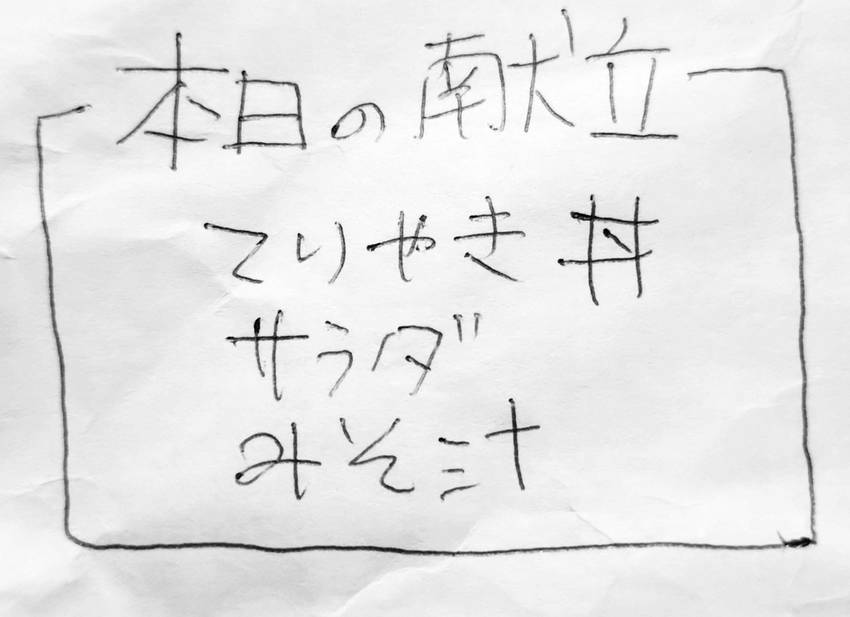 本日の献立
てりやき丼
サラダ
みそ汁